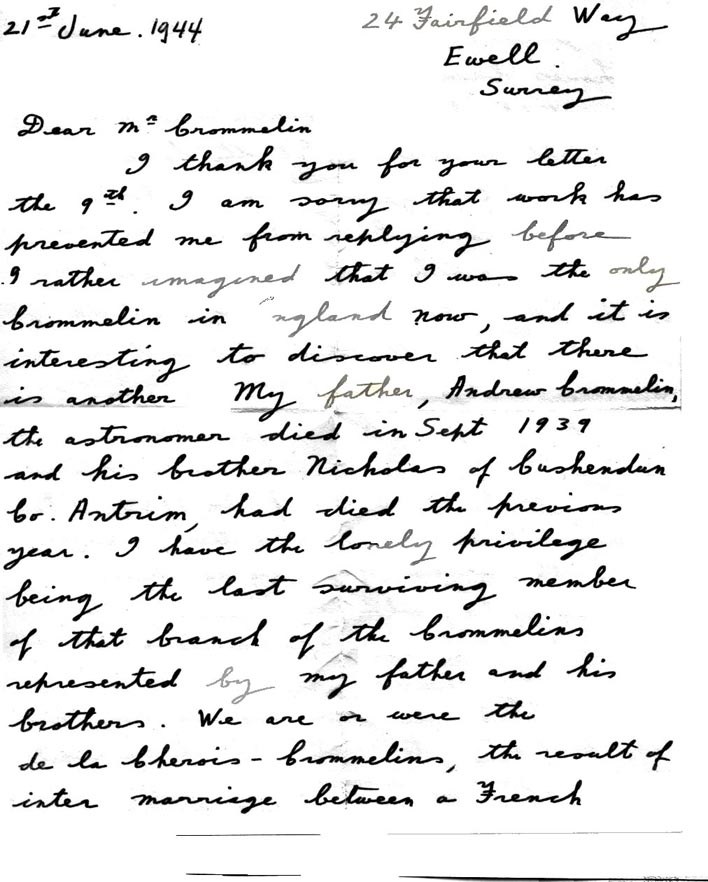 21st June. 1944
24 Fairfield Way
Ewell.
Surrey
Dear Mr Crommelin
I thank you for your letter
the 9th. I am sorry that work has
prevented me from replying before
I rather imagined that I was the only
Crommelin in ngland now, and it is
interesting to discover that there
is another My father, Andrew Crommelin,
the astronomer died in Sept 1939
and his brother Nicholas of Cushendun
Co. Antrim, had died the previous
year. I have the lonely privilege
being the last surviving member
of that branch of the Crommelins
represented by my father and his
brothers. We are or were the
de la Cherois-Crommelins, the result of
inter marriage between a French